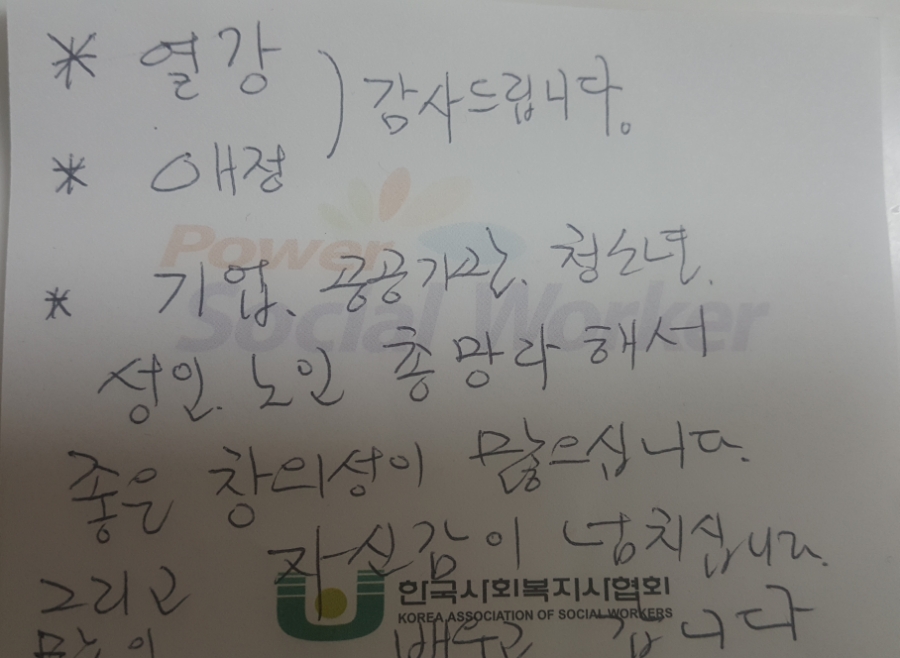 * 열강
) 감사드립니다.
* 애정
Power
Social Worker
* 기업、공공기관、청소년.
성인. 노인 총망라해서
좋은 창의성이 많으십니다.
자신감이 넘치십니다.
그리고
한국사회복지사협회
KOREA ASSOCIATION OF SOCIAL WORKERS
많이 배우고 갑니다